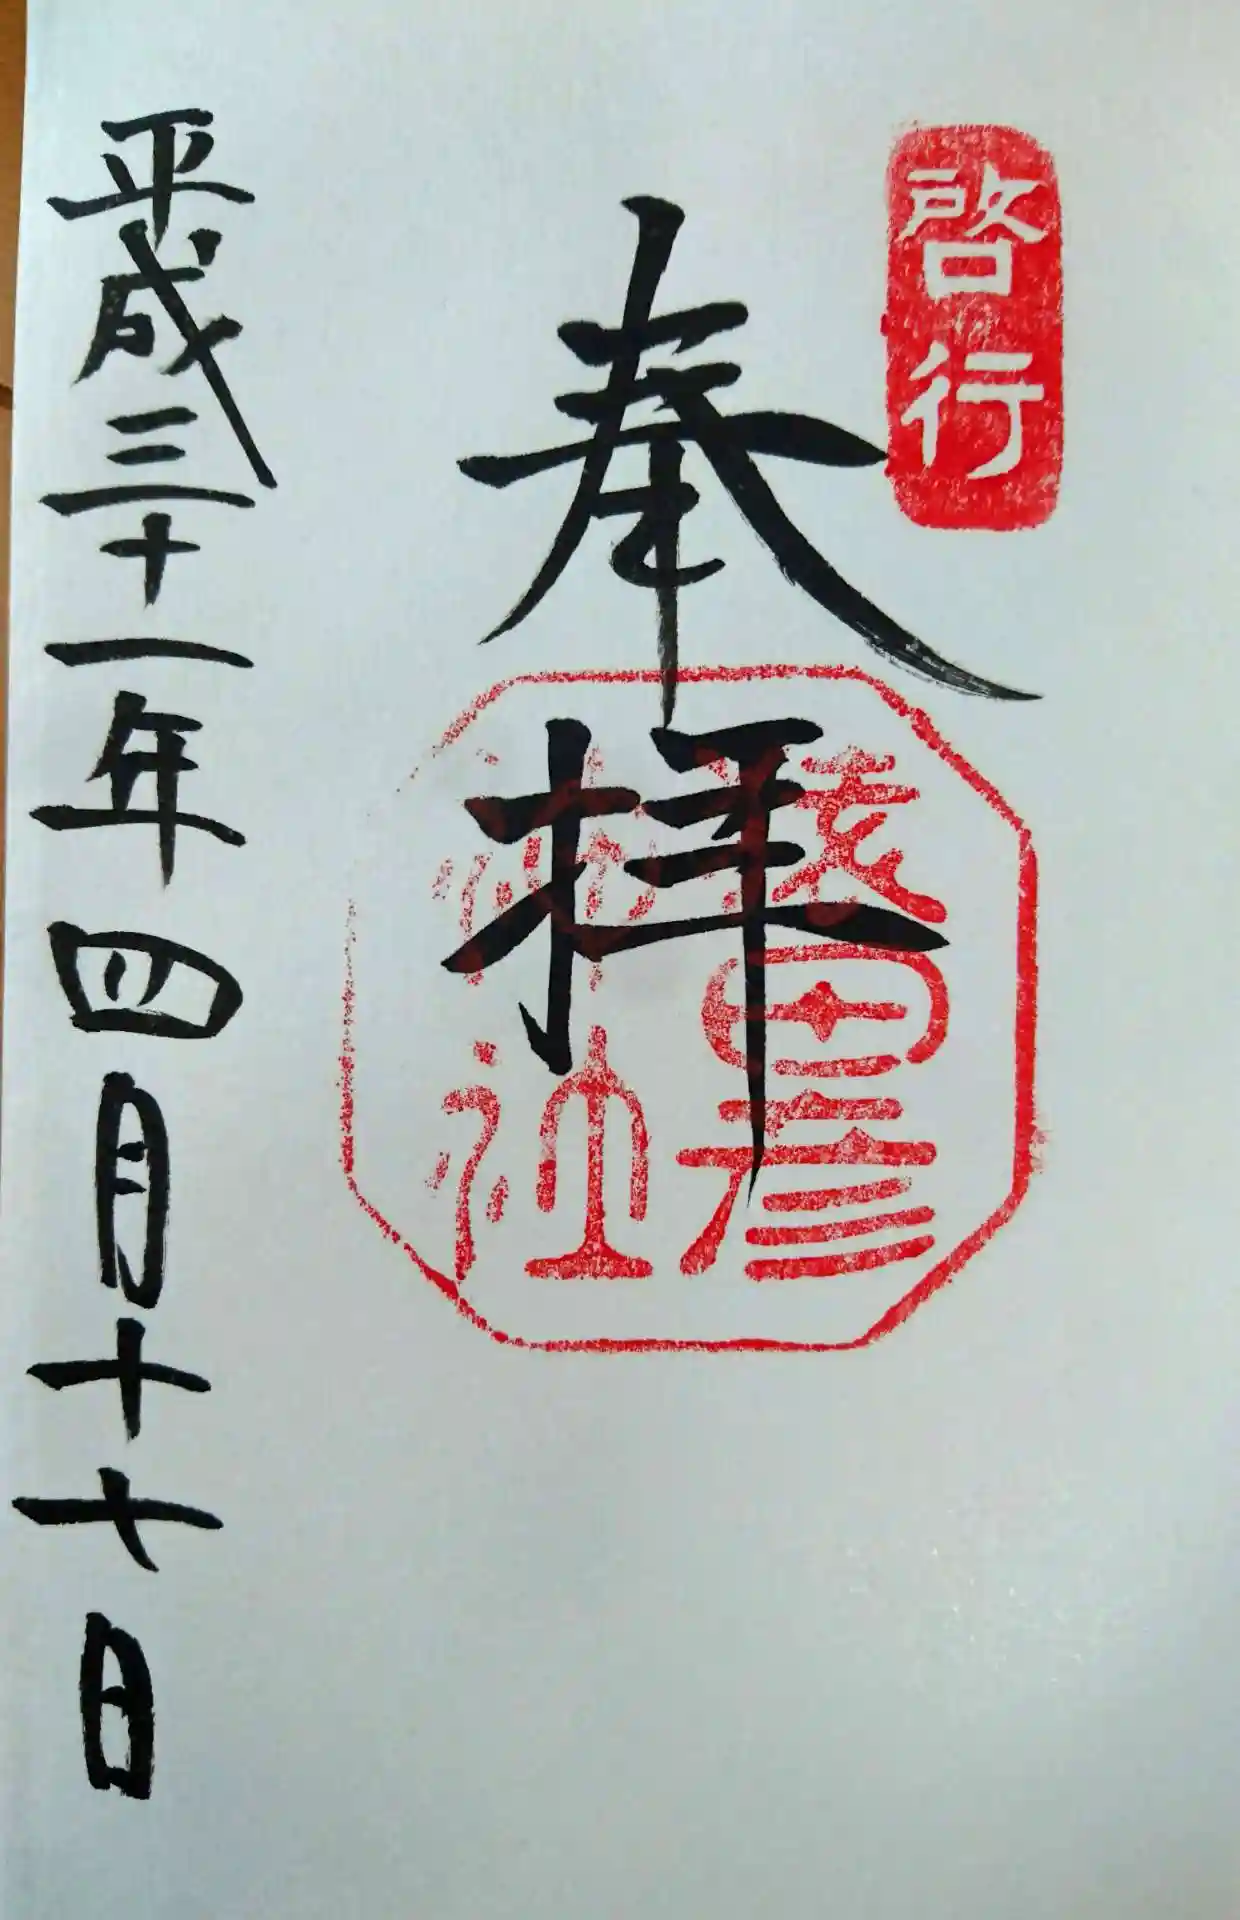 啓行
奉拝
猿田彦
神社
平成三十一年四月十七日